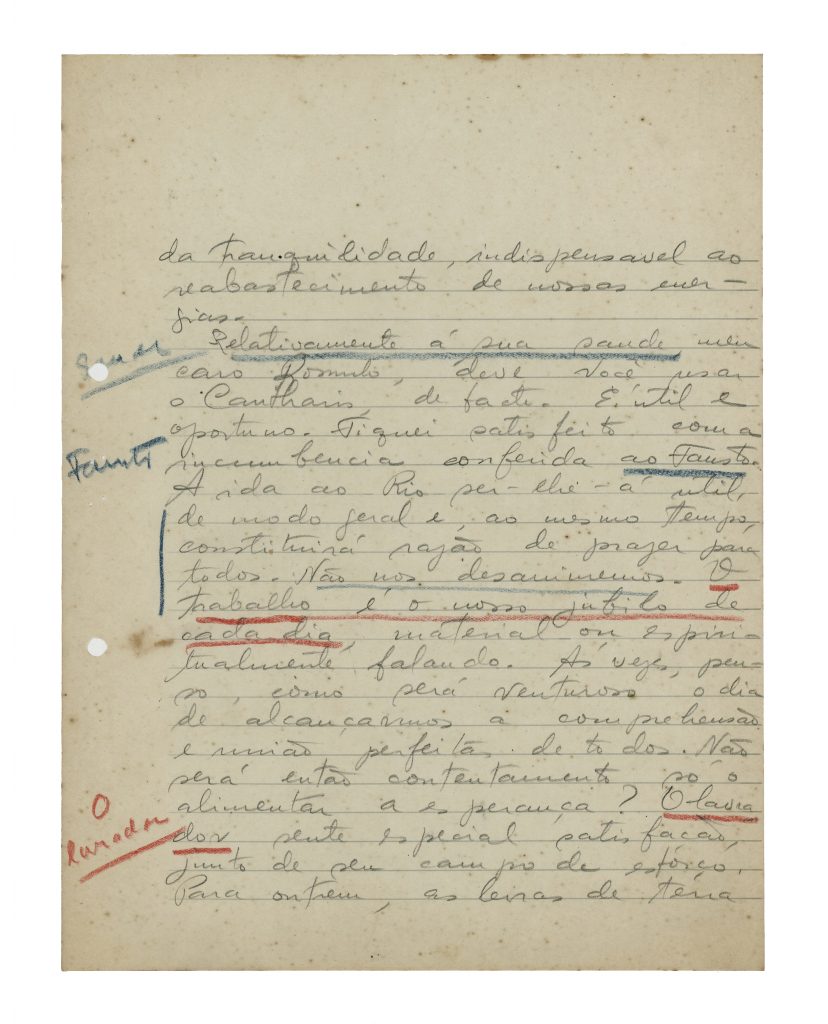 da tranquilidade, indispensavel ao
reabastecimento de nossas ener-
gias.
Relativamente á sua saude, meu
caro Romulo, deve você usar
o Cantharis, de facto. É útil e
oportuno. Fiquei satisfeito com a
Fausto
incumbencia conferida ao Fausto.
A ida ao Rio ser-lhe-á útil,
de modo geral e, ao mesmo tempo,
constituirá razão de prazer para
todos. Não nos desanimemos. O
trabalho é o nosso júbilo de
cada dia, material ou espiri-
tualmente falando. Ás vezes, pen-
so, como será venturoso o dia
de alcançarmos a comprehensão
e união perfeitas de todos. Não
será então contentamento só o
alimentar a esperança? O lavra
O
lavrador
dor sente especial satisfacão,
junto de seu campo de esforço.
Para outrem, as leiras de terra